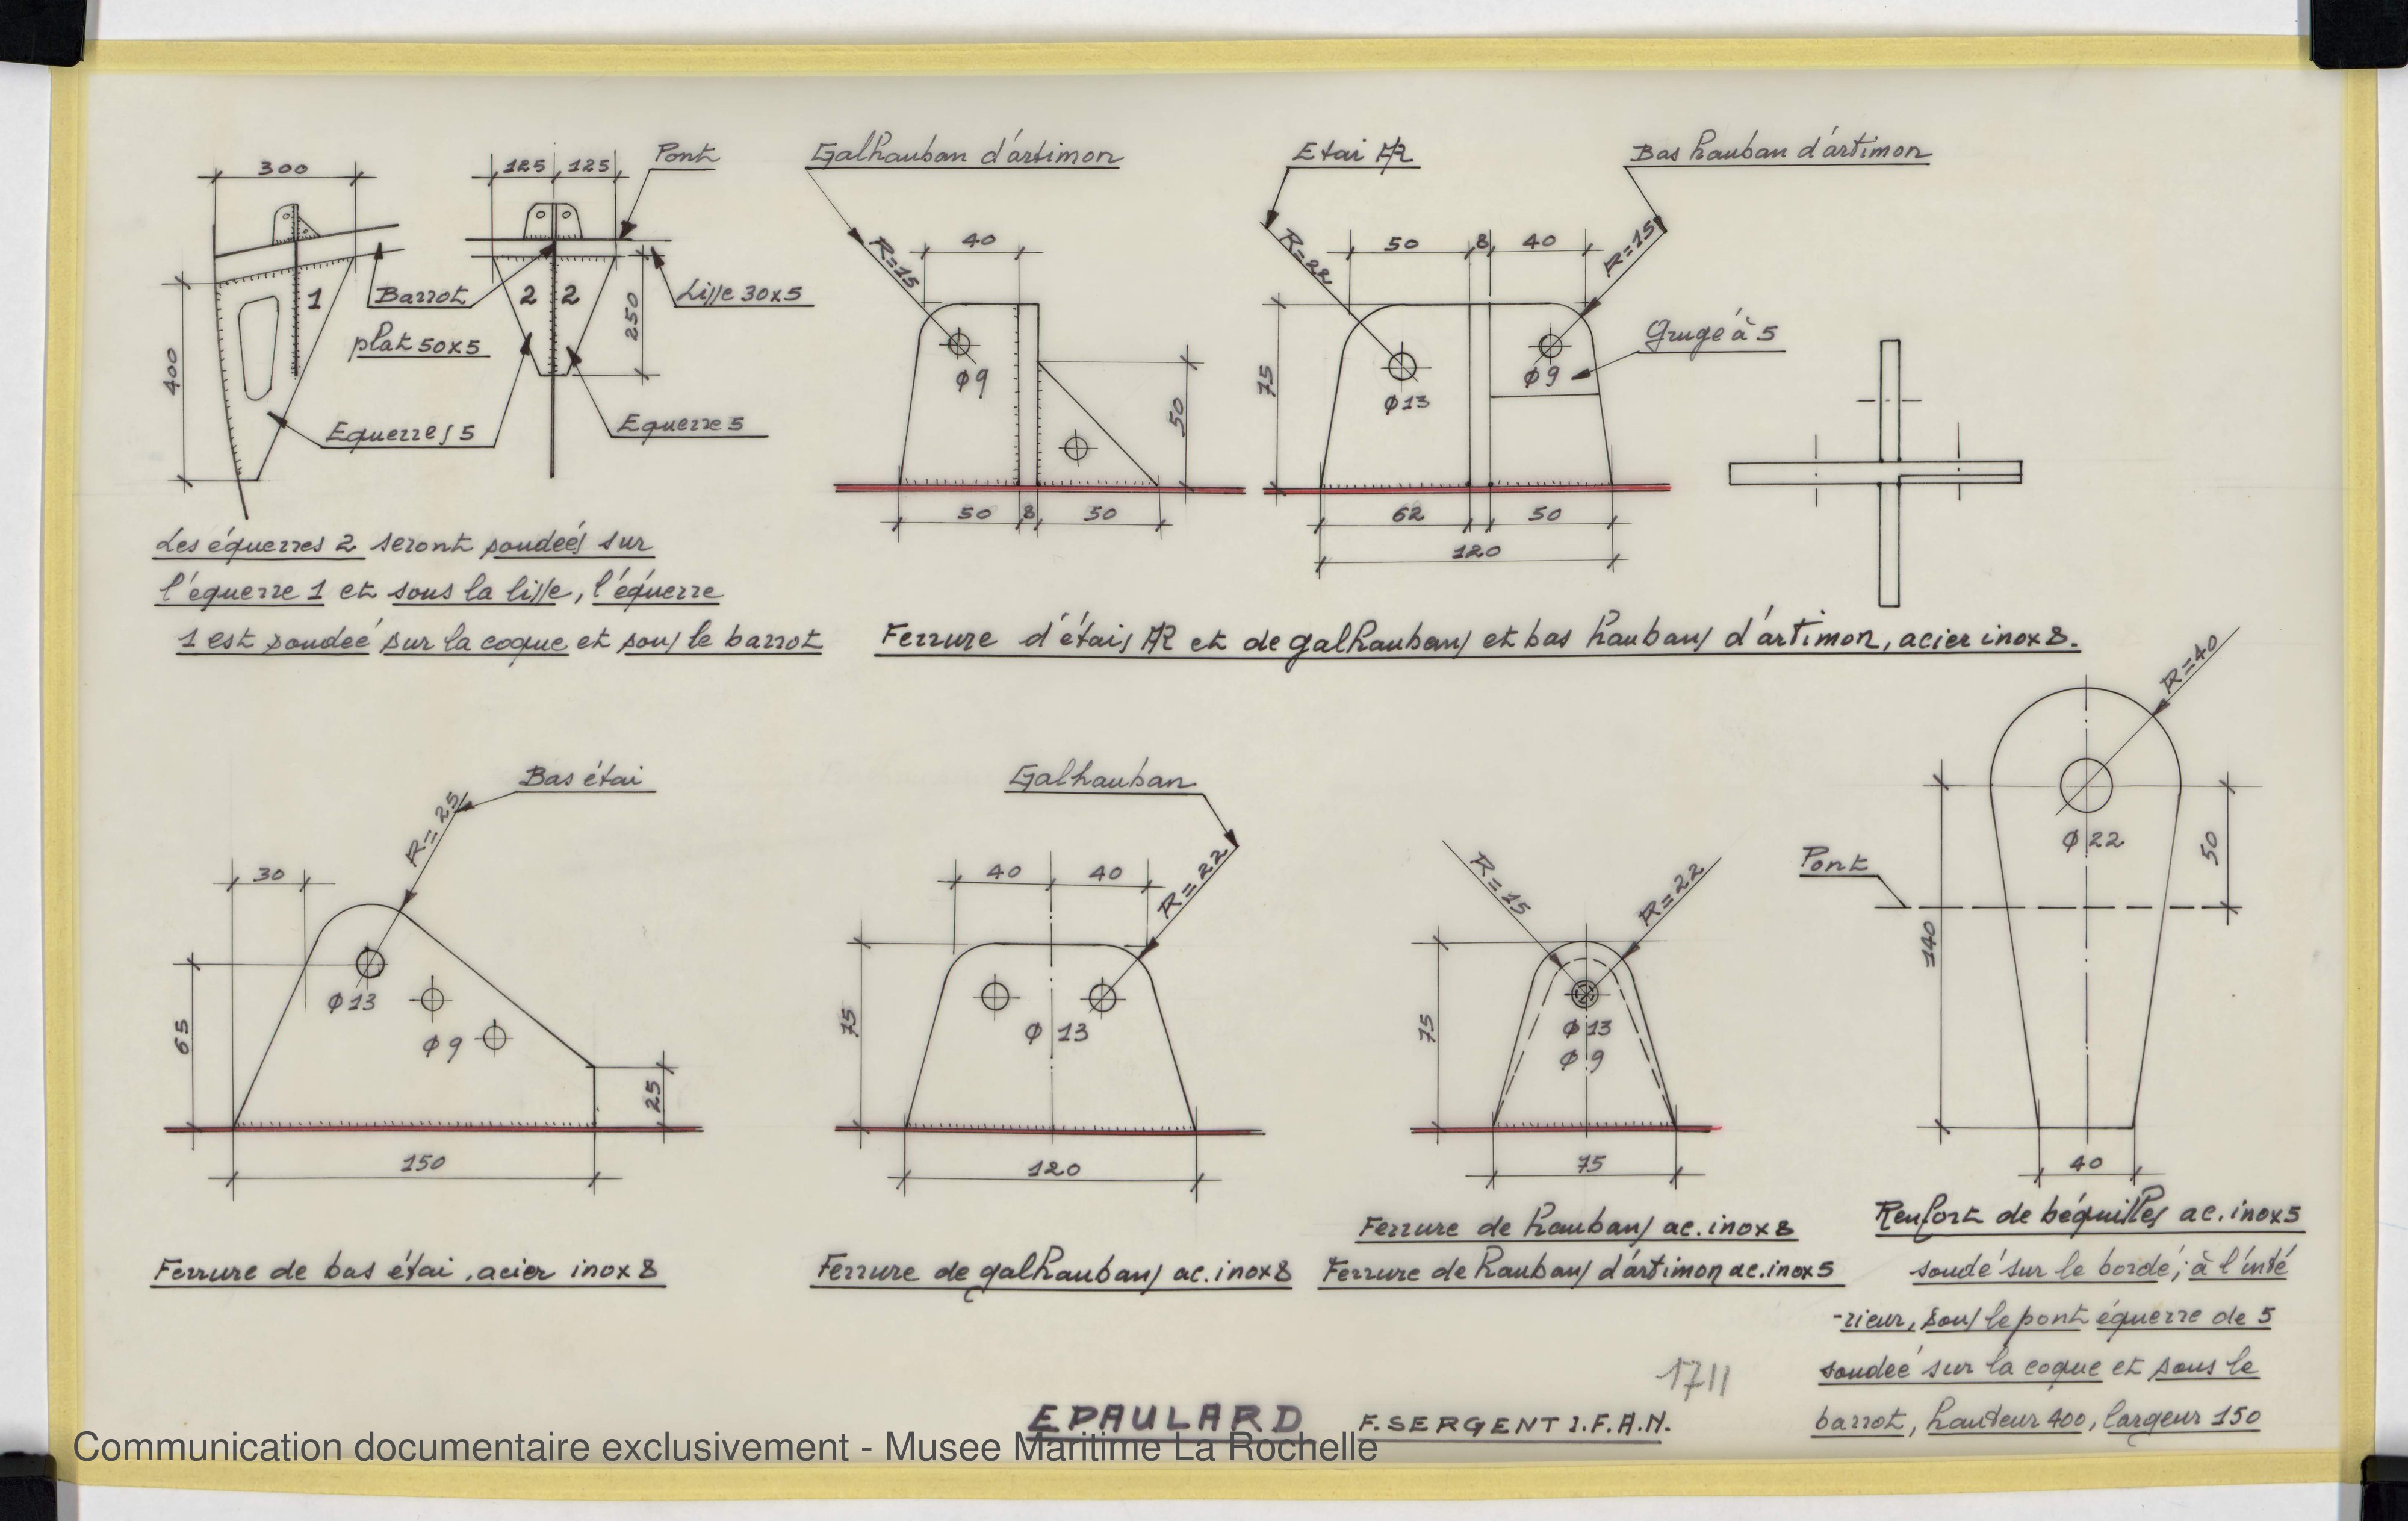 300
125 125
Pont
400
1
2 2
250
Barrot
plat 50x5
Lisse 30x5
Equerres 5
Equerre 5
Les équerres 2 seront soudées sur
l'équerre 1 et sous la lisse, l'équerre
1 est soudée sur la coque et sous le barrot
Galhauban d'artimon
R=15
40
Ø9
50
50 8 50
Etai AR
Bas hauban d'artimon
R=22
50 8 40
R=15
75
Ø13
Ø9
Grugé à 5
62 50
120
Ferrure d'étais AR et de galhaubans et bas haubans d'artimon, acier inox 8.
Bas étai
R=25
30
65
Ø13
Ø9
25
150
Ferrure de bas étai, acier inox 8
Galhauban
40 40
R=22
75
Ø 13
120
Ferrure de galhaubans ac. inox 8
R=15
R=22
75
Ø 13
Ø 9
75
Ferrure de haubans ac. inox 8
Ferrure de haubans d'artimon ac. inox 5
R=40
Ø 22
Pont
50
140
40
Renfort de béquilles ac. inox 5
soudé sur le bordé; à l'inté
-rieur, sous le pont équerre de 5
soudée sur la coque et sous le
barrot, hauteur 400, largeur 150
1711
EPAULARD F. SERGENT I.F.A.N.
Communication documentaire exclusivement - Musee Maritime La Rochelle